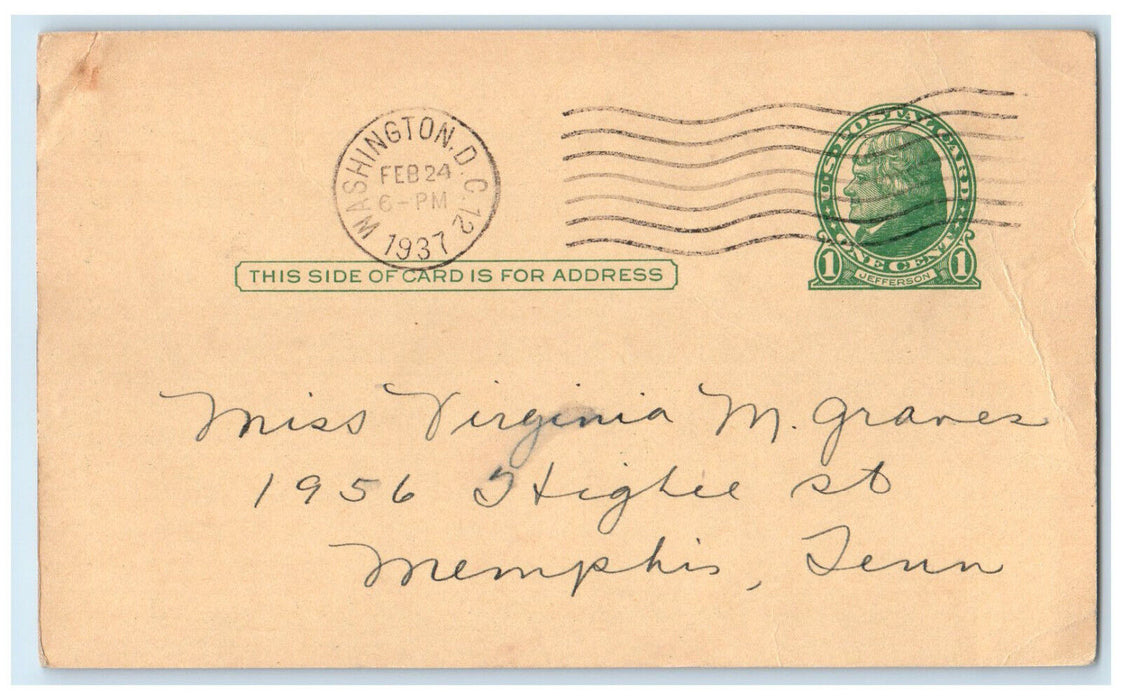 WASHINGTON, D.C. 12
FEB 24
6-PM
1937
U.S. POSTAL CARD
ONE CENT
1 JEFFERSON 1
THIS SIDE OF CARD IS FOR ADDRESS
Miss Virginia M. Graves
1956 Higbee st
Memphis, Tenn